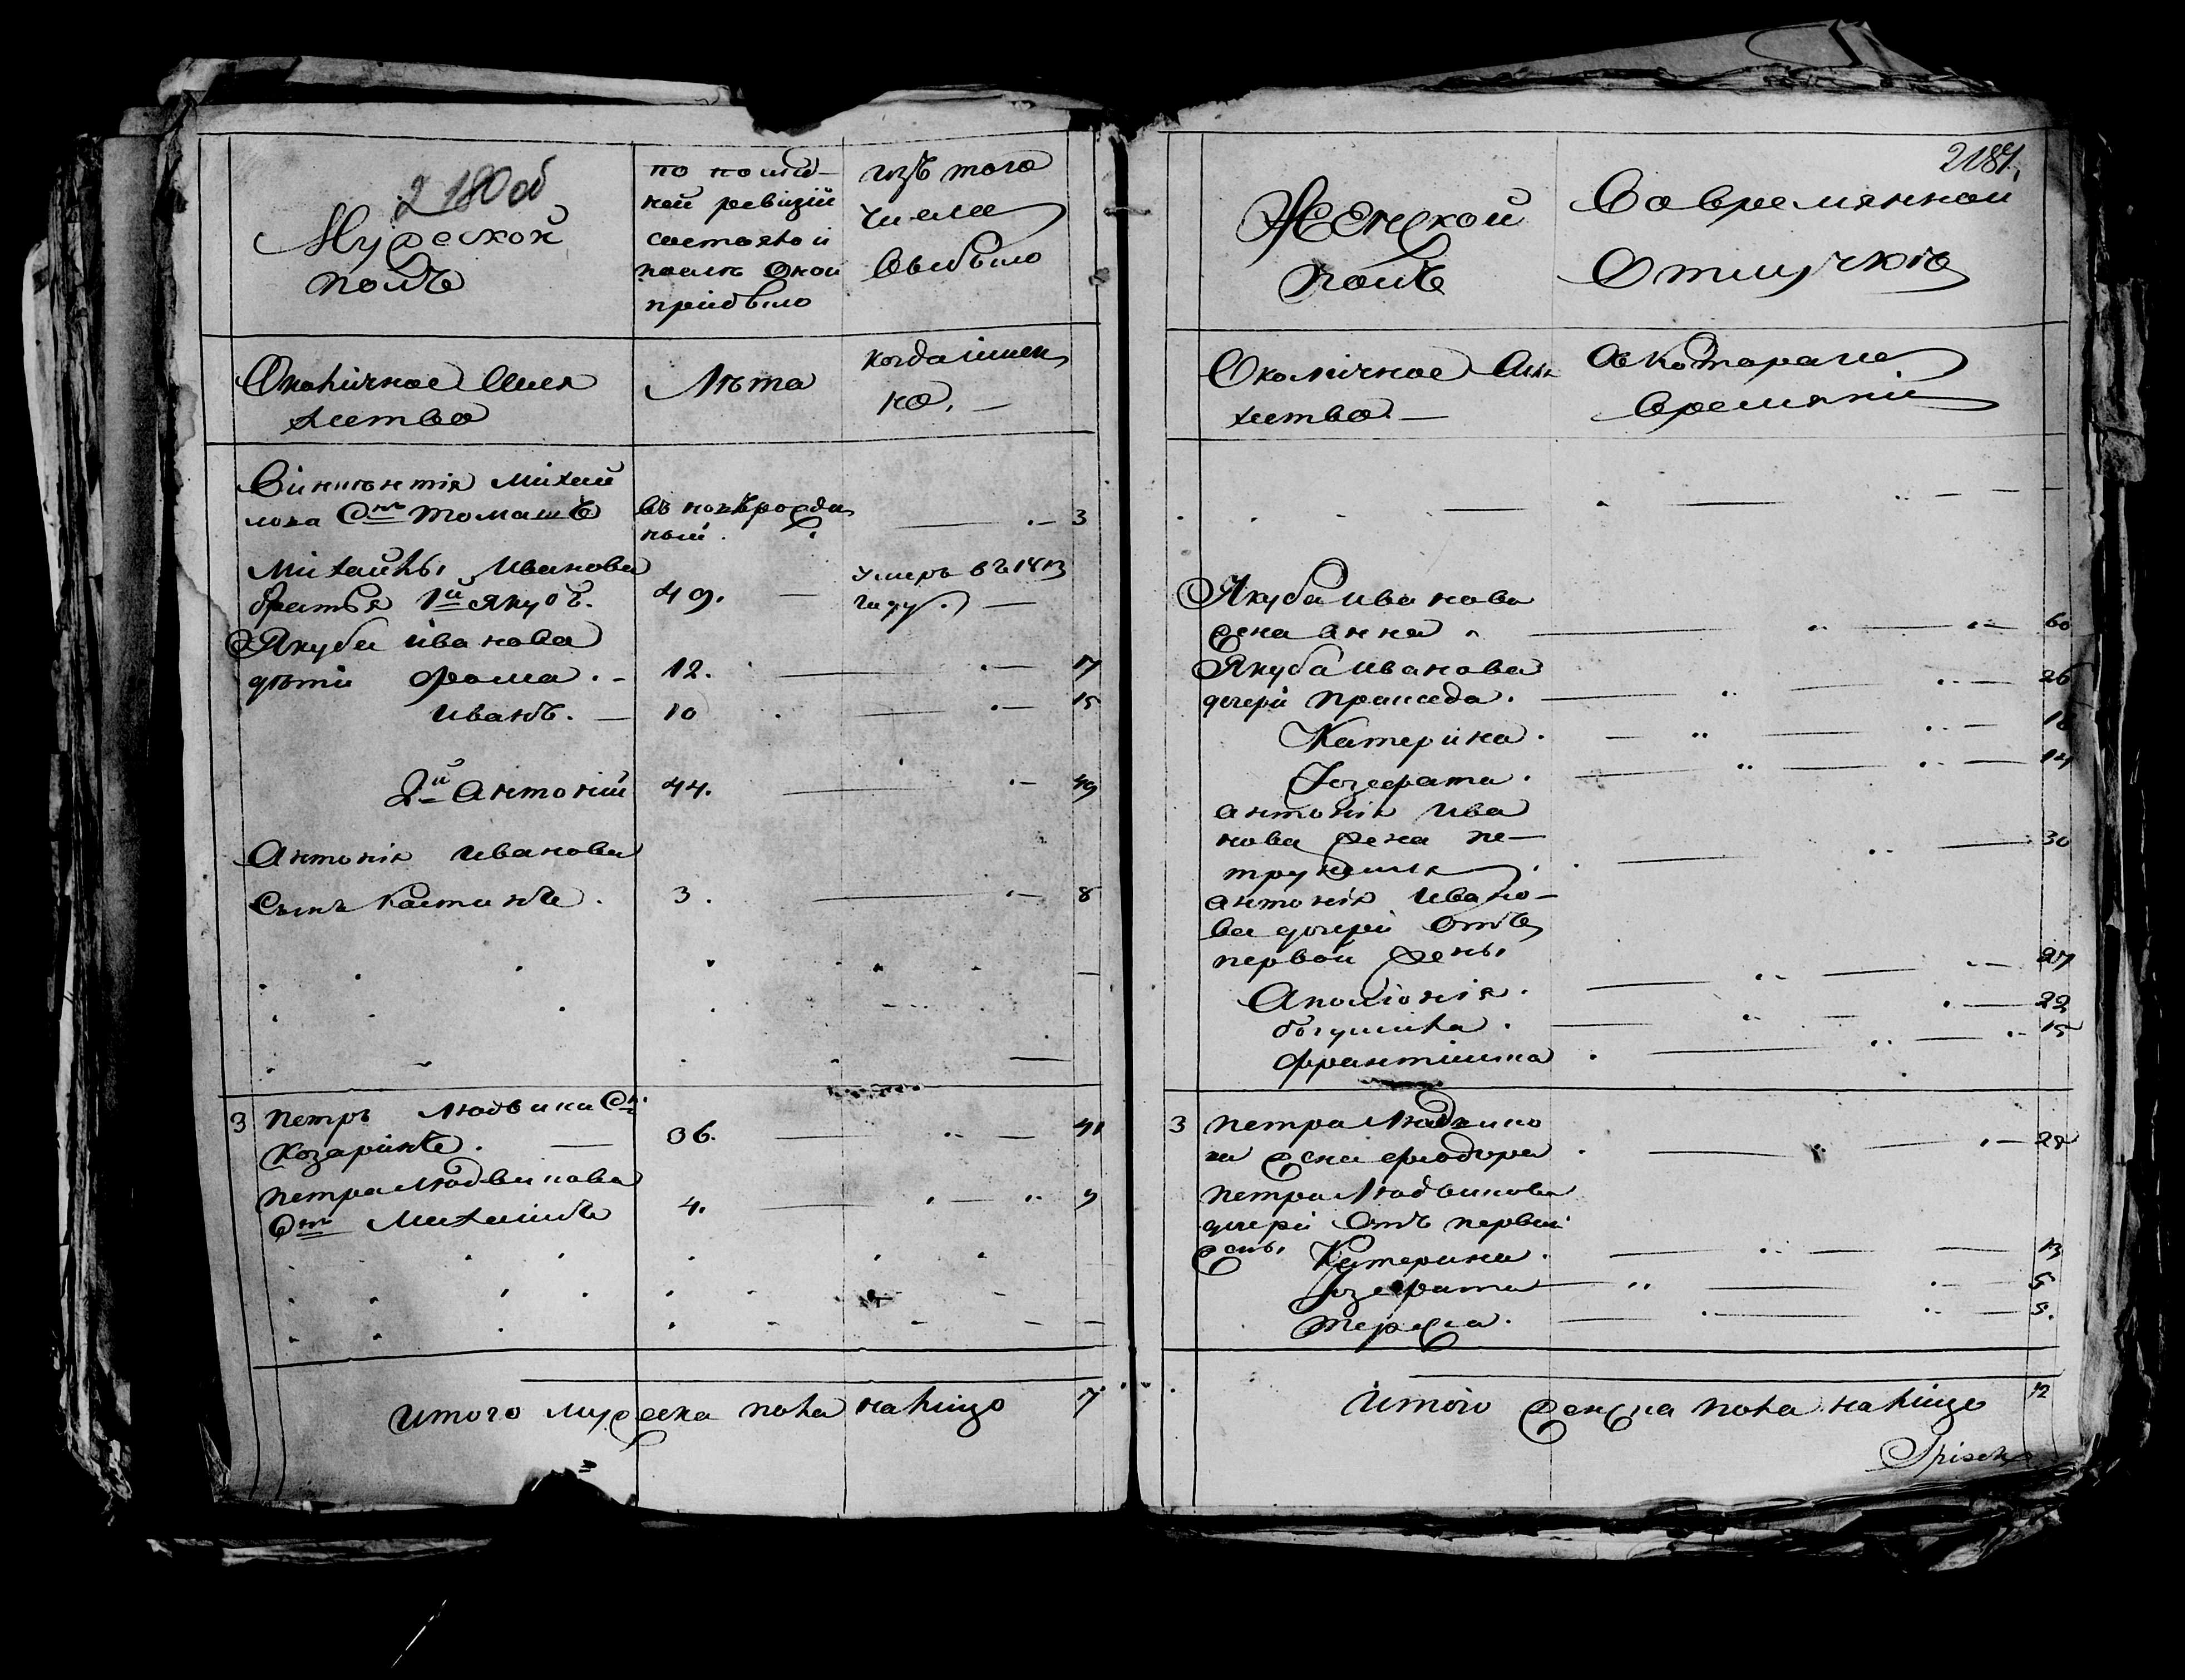 2180 об
Мужеской
полъ
по послѣд-
ней ревизіи
состояло и
послѣ оной
прибыло
изъ того
числа
выбыло
Околичное Шля
хетство
Лѣта
когда іимен
но. —
Винцентія Михай
лова Снъ Томашъ
въ новърожде
ный.
— 3
Михайлы Иванова
братья 1й Якубъ.
49. —
умеръ въ 1813
году. —
Якуба Иванова
дѣти Фома. -
12. — 17
Иванъ. —
10 — 15
2й Антоній
44. — 49
Антонія Иванова
Сынъ Костинъ.
3. — 8
3 Петръ Людвика Снъ
Козаринъ. —
36. — 41
Петра Людвикова
Снъ Михаилъ
4. — 9
Итого мужеска пола налицо 7
2181.
Женской
полъ
Во времянной
отлучкѣ
Околичное Шля
хетство. —
Съ котораго
времяни
Якуба Иванова
жена Анна — 60
Якуба Иванова
дочери Прашеда. — 26
Катерина. — 18
Іозефата. — 14
Антонія Ива
нова жена Пе-
трунеля — 30
Антонія Ивано-
ва дочери отъ
первой жены
27
Аполонія. —
22
Богумила. — 15
Францишка
3 Петра Людвико
ва жена Ѳіодора — 28
Петра Людвикова
дочери отъ первой
жены Катерина. — 13
Іозефата — 6
Тереса. — 5.
Итого женска пола налицо 12